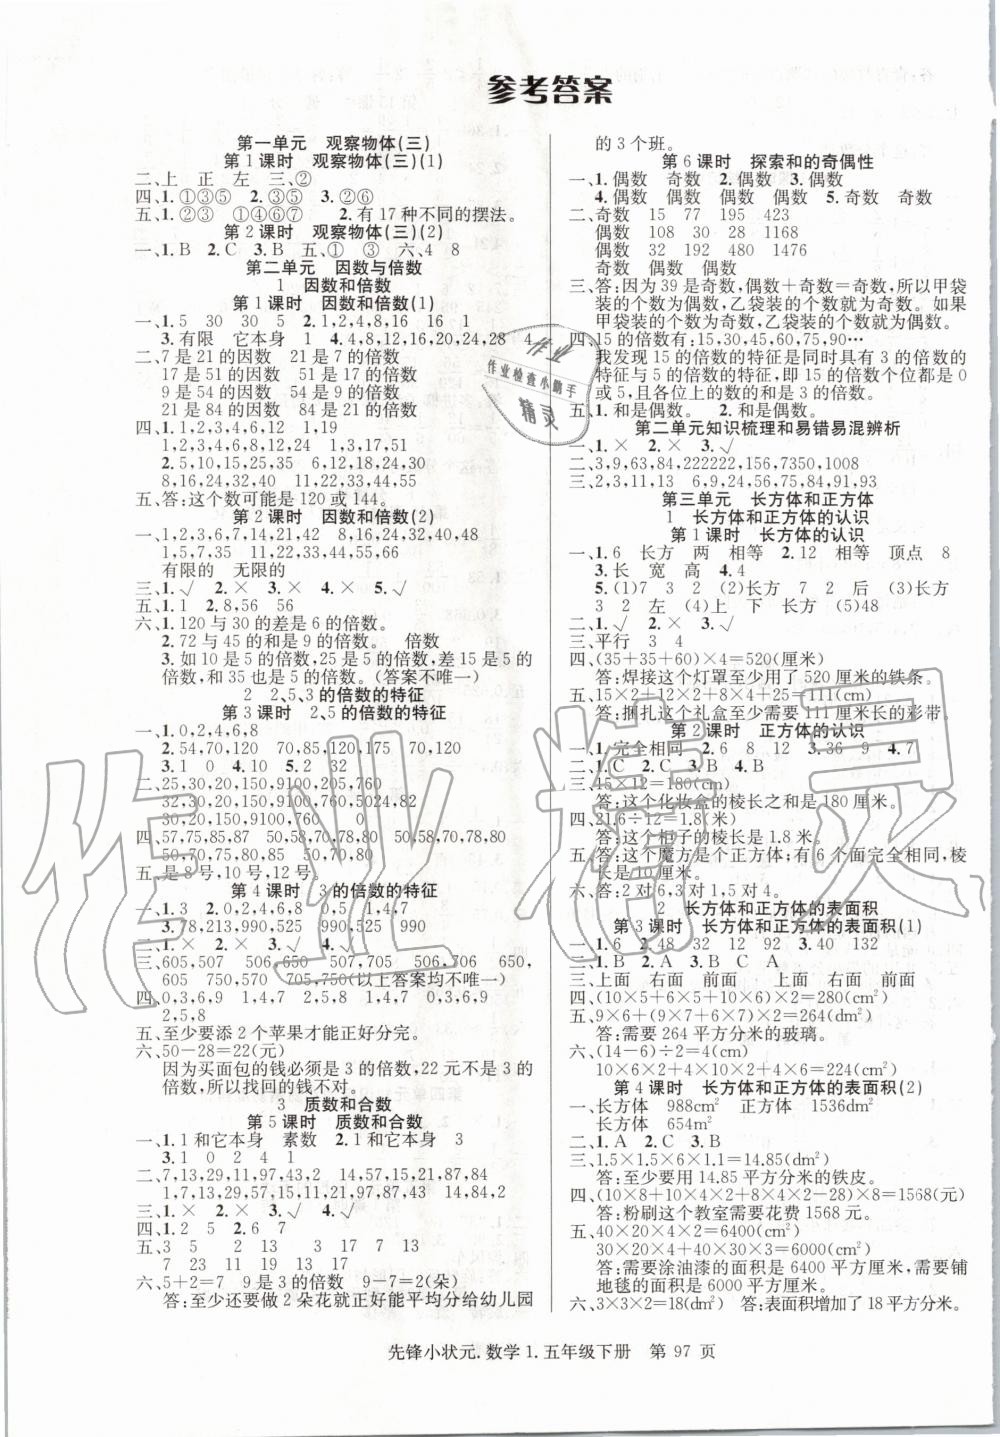 参考答案
第一单元　观察物体(三)
第1课时　观察物体(三)(1)
二、上　正　左　三、②
四、1.①③⑤　2.③⑤　3.②⑥
五、1.②③　①④⑥⑦　2.有17种不同的摆法。
第2课时　观察物体(三)(2)
一、1.B　2.C　3.B　五、①　③　六、4　8
第二单元　因数与倍数
1　因数和倍数
第1课时　因数和倍数(1)
一、1.5　30　30　5　2.1,2,4,8,16　16　1
3.有限　它本身　1　4.4,8,12,16,20,24,28　4
二、7是21的因数　21是7的倍数
17是51的因数　51是17的倍数
9是54的因数　54是9的倍数
21是84的因数　84是21的倍数
四、1.1,2,3,4,6,12　1,19
1,2,3,4,6,8,12,24　1,3,17,51
2.5,10,15,25,35　6,12,18,24,30
8,16,24,32,40　11,22,33,44,55
五、答:这个数可能是120或144。
第2课时　因数和倍数(2)
一、1.1,2,3,6,7,14,21,42　8,16,24,32,40,48
1,5,7,35　11,22,33,44,55,66
有限的　无限的
三、1.√　2.×　3.×　4.×　5.√
五、1.1　2.8,56　56
六、1.120与30的差是6的倍数。
2.72与45的和是9的倍数。　倍数
3.如10是5的倍数,25是5的倍数,差15是5的
倍数,和35也是5的倍数。(答案不唯一)
2　2、5、3的倍数的特征
第3课时　2、5的倍数的特征
一、1.0,2,4,6,8
2.54,70,120　70,85,120,115　70,120
3.1　0　4.10　5.2　32
二、25,30,20,150,100,205,760
32,30,20,150,9100,760,5024,82
30,20,150,9100,760　0
四、57,75,85,87　50,58,70,78,80　50,58,70,78,80
50,70,75,80,85　50,70,80
五、是8号,10号,12号。
第4课时　3的倍数的特征
一、1.3　2.0,2,4,6,8　0,5　1,4,7
3.78,213,990,525　78,990　525,990　990
二、1.×　2.×　3.√　4.√
三、605,507　506,650　507,705　506,706　650,
605　750,570　705,750(以上答案均不唯一)
四、0,3,6,9　1,4,7　2,5,8　1,4,7　0,3,6,9
2,5,8
五、至少要添2个苹果才能正好分完。
六、50-28=22(元)
因为买面包的钱必须是3的倍数,22元不是3的
倍数,所以找回的钱不对。
3　质数和合数
第5课时　质数和合数
一、1.1和它本身　素数　2.1和它本身　3
3.1　0　2　4　1
二、7,13,29,11,97,43,2　14,15,21,87,84
1,7,13,29,57,11,15,21,97,43,87　14,84,2
三、1.×　2.×　3.√　4.√
四、1.2　5　2.6　7
五、3　5　2　13　3　5　7　11
7　23　11　19　13　17
六、5+2=7　9是3的倍数　9-7=2(朵)
答:至少还要做2朵花就正好能平均分给幼儿园
的3个班。
第6课时　探索和的奇偶性
一、1.偶数　奇数　2.偶数　3.偶数
4.偶数　偶数　偶数　偶数　5.奇数　奇数
二、奇数　15　77　195　423
偶数　108　30　28　1168
偶数　32　192　480　1476
奇数　偶数　偶数
三、答:因为39是奇数,偶数+奇数=奇数,所以甲袋
装的个数为偶数,乙袋装的个数就为奇数。如果
甲袋装的个数为奇数,乙袋装的个数就为偶数。
四、15的倍数有:15,30,45,60,75,90…
我发现15的倍数的特征是同时具有3的倍数的
特征与5的倍数的特征,即15的倍数个位都是0
或5,且各位上的数的和是3的倍数。
五、1.和是偶数。　2.和是偶数。
第二单元知识梳理和易错易混辨析
一、1.×　2.×　3.×　4.×
二、3,9,63,84,222222,156,7350,1008
三、2,3,11,13　6,9,24,56,57,87,91,93
第三单元　长方体和正方体
1　长方体和正方体的认识
第1课时　长方体的认识
一、1.6　长方　两　相等　2.12　相等　顶点　8
3.长　宽　高　4.4
5.(1)7　3　2　(2)长方　7　2　后　(3)长方
3　2　左　(4)上　下　长方　(5)48
二、1.√　2.×　3.√
三、平行　3　4
四、(35+35+60)×4=520(厘米)
答:焊接这个灯罩至少用了520厘米的铁条。
五、15×2+12×2+8×4+25=111(cm)
答:捆扎这个礼盒至少需要111厘米长的彩带。
第2课时　正方体的认识
一、1.完全相同　2.6　8　12　3.36　9　4.7
二、1.C　2.C　3.B　4.B
三、45×12=180(cm)
答:这个化妆盒的棱长之和是180厘米。
四、21.6÷12=1.8(米)
答:这个柜子的棱长是1.8米。
五、答:这个魔方是个正方体;有6个面完全相同,棱
六、答:2对6,3对1,5对4。
2　长方体和正方体的表面积
第3课时　长方体和正方体的表面积(1)
一、1.6　2.48　32　12　92　3.40　132
二、1.B　2.A　3.B　C　A
三、上面　右面　前面　上面　右面　前面
四、(10×5+6×5+10×6)×2=280(cm²)
五、9×6+(9×7+6×7)×2=264(dm²)
答:需要264平方分米的玻璃。
六、(14-6)÷2=4(cm)
10×6×2+4×10×4=280(cm²)
第4课时　长方体和正方体的表面积(2)
一、长方体　988cm²　正方体　1536dm²
长方体　654m²
二、1.A　2.C　3.B
三、1.5×1.5×1.5+1.5×1.1=14.85(dm²)
答:至少要用14.85平方分米的铁皮。
四、(10×8+10×4×2+8×4×2-28)×8=1568(元)
答:粉刷这个教室需要花费1568元。
五、40×20×4×2=6400(cm²)
30×20×4+40×30×3=6000(cm²)
答:需要涂油漆的面积是6400平方厘米,需要铺
地毯的面积是6000平方厘米。
六、3×3×2=18(dm²)　答:表面积增加了18平方分米。
先锋小状元.数学1.五年级下册　第97页
作业
作业检查小助手
精灵
作业精灵